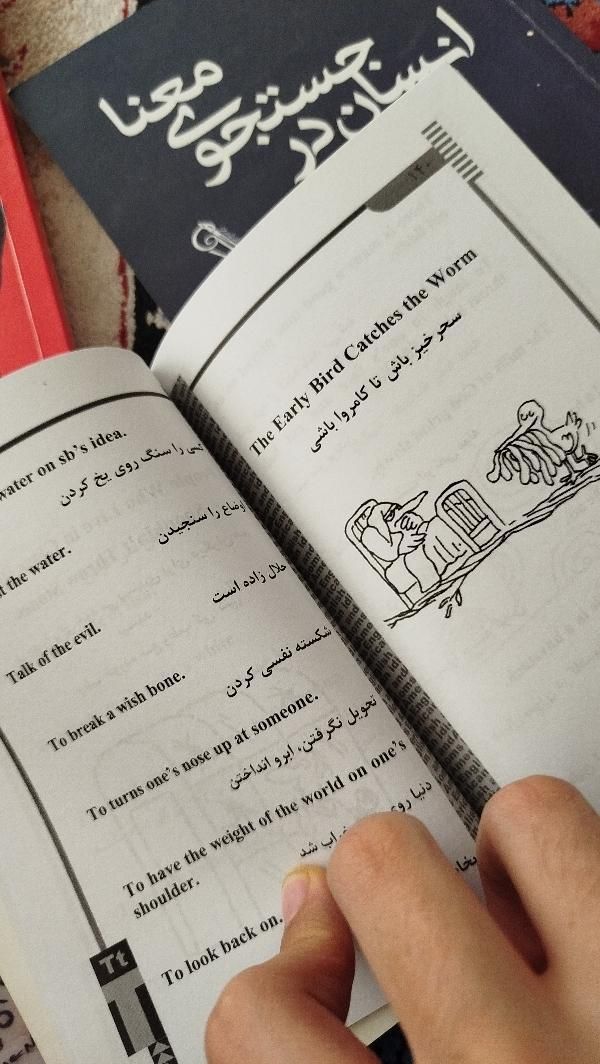 انسان در
جستجوی
معنا
water on sb's idea.
را سنگ روی یخ کردن
the water.
اوضاع را سنجیدن
Talk of the evil.
حلال زاده است
To break a wish bone.
شکسته نفسی کردن
To turns one's nose up at someone.
تحویل نگرفتن، ابرو انداختن
To have the weight of the world on one's
shoulder.
دنیا روی خراب شد
To look back on.
Tt
۱۴۰
The Early Bird Catches the Worm
سحرخیز باش تا کامروا باشی